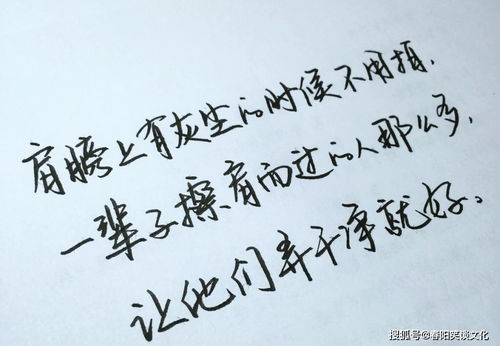 肩膀上有灰尘的时候不用掸，
一辈子擦肩而过的人那么多，
让他们弄干净就好。
搜狐号@春阳笑谈文化